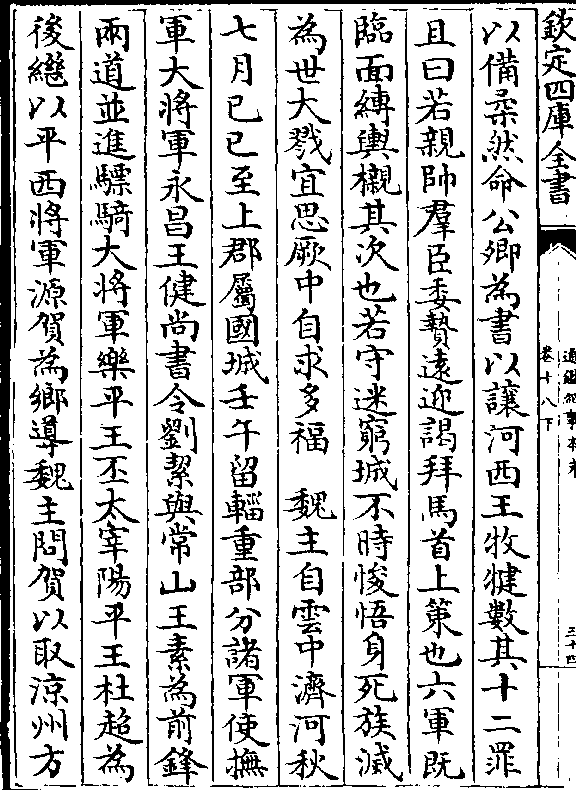 欽定四庫全書
通鑑紀事本末
卷十八下
三十四
以備柔然命公卿為書以讓河西王牧犍數其十二罪
且曰若親帥羣臣委贄遠迎謁拜馬首上策也六軍既
臨面縛輿櫬其次也若守迷窮城不時悛悟身死族滅
為世大戮宜思厥中自求多福　魏主自雲中濟河秋
七月己巳至上郡屬國城壬午留輜重部分諸軍使撫
軍大將軍永昌王健尚書令劉㓗與常山王素為前鋒
兩道並進驃騎大將軍樂平王丕太宰陽平王杜超為
後繼以平西將軍源賀為鄉導魏主問賀以取涼州方